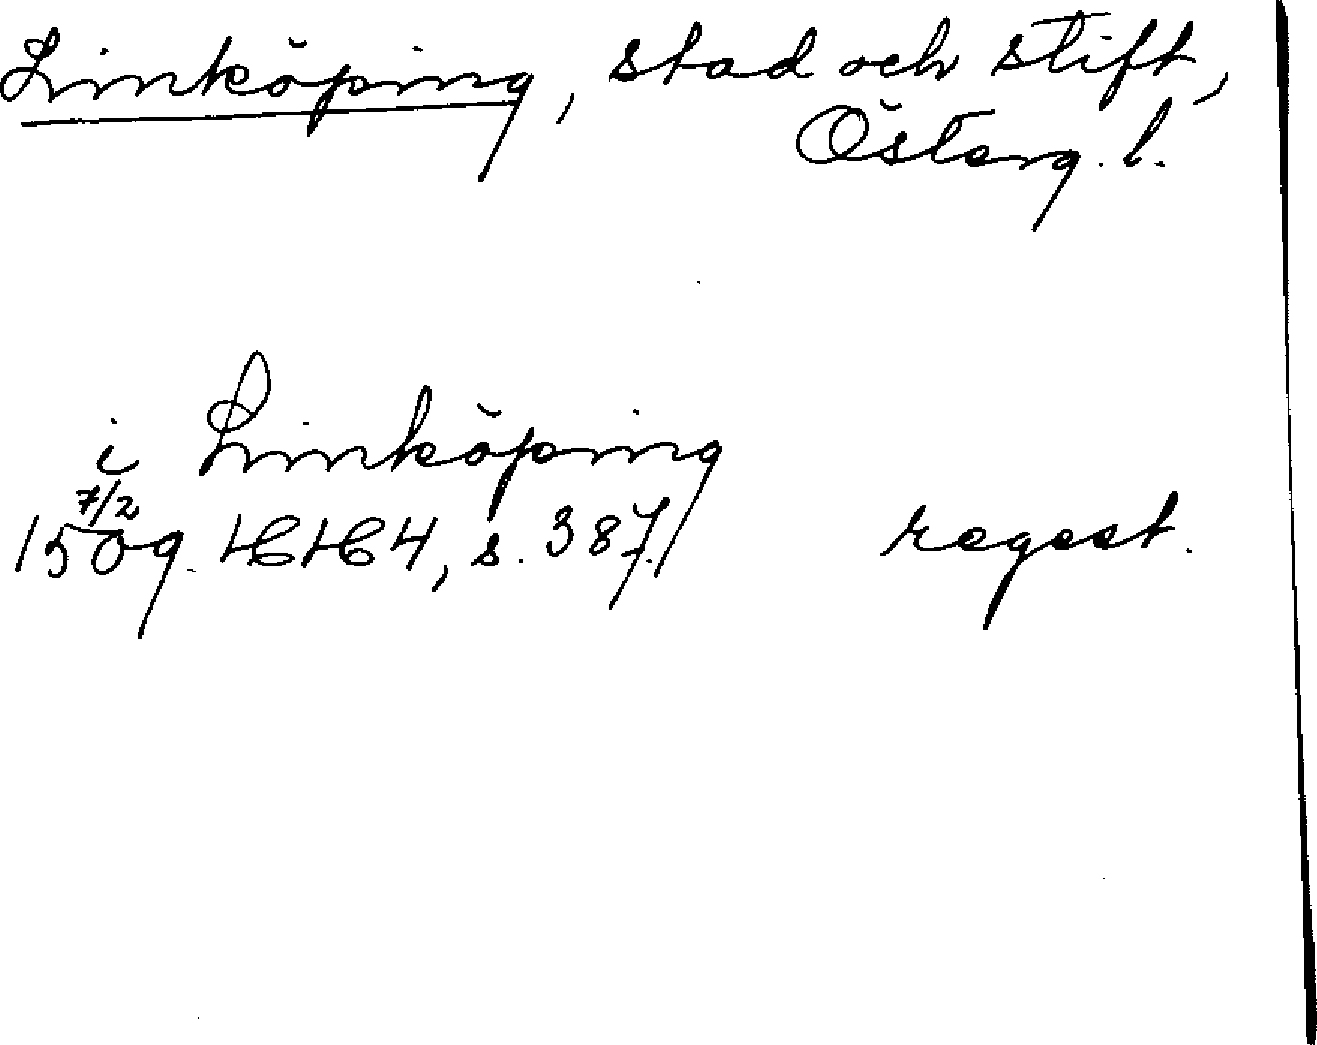 Linköping, stad och stift,
Österg. l.
i Linköping
7/2
1509. HH 4, s. 387. regest.